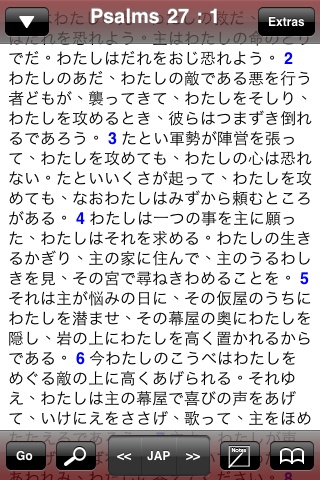 Psalms 27 : 1
Extras
でだ。わたしはだれをおじ恐れよう。 2
わたしのあだ、わたしの敵である悪を行う
者どもが、襲ってきて、わたしをそしり、
わたしを攻めるとき、彼らはつまずき倒れ
るであろう。 3 たとい軍勢が陣営を張っ
て、わたしを攻めても、わたしの心は恐れ
ない。たといいくさが起って、わたしを攻
めても、なおわたしはみずから頼むところ
がある。 4 わたしは一つの事を主に願っ
た、わたしはそれを求める。わたしの生き
るかぎり、主の家に住んで、主のうるわし
きを見、その宮で尋ねきわめることを。 5
それは主が悩みの日に、その仮屋のうちに
わたしを潜ませ、その幕屋の奥にわたしを
隠し、岩の上にわたしを高く置かれるから
である。 6 今わたしのこうべはわたしを
めぐる敵の上に高くあげられる。それゆ
え、わたしは主の幕屋で喜びの声をあげ
て、いけにえをささげ、歌って、主をほめ
Go
<<
JAP
>>
Notes